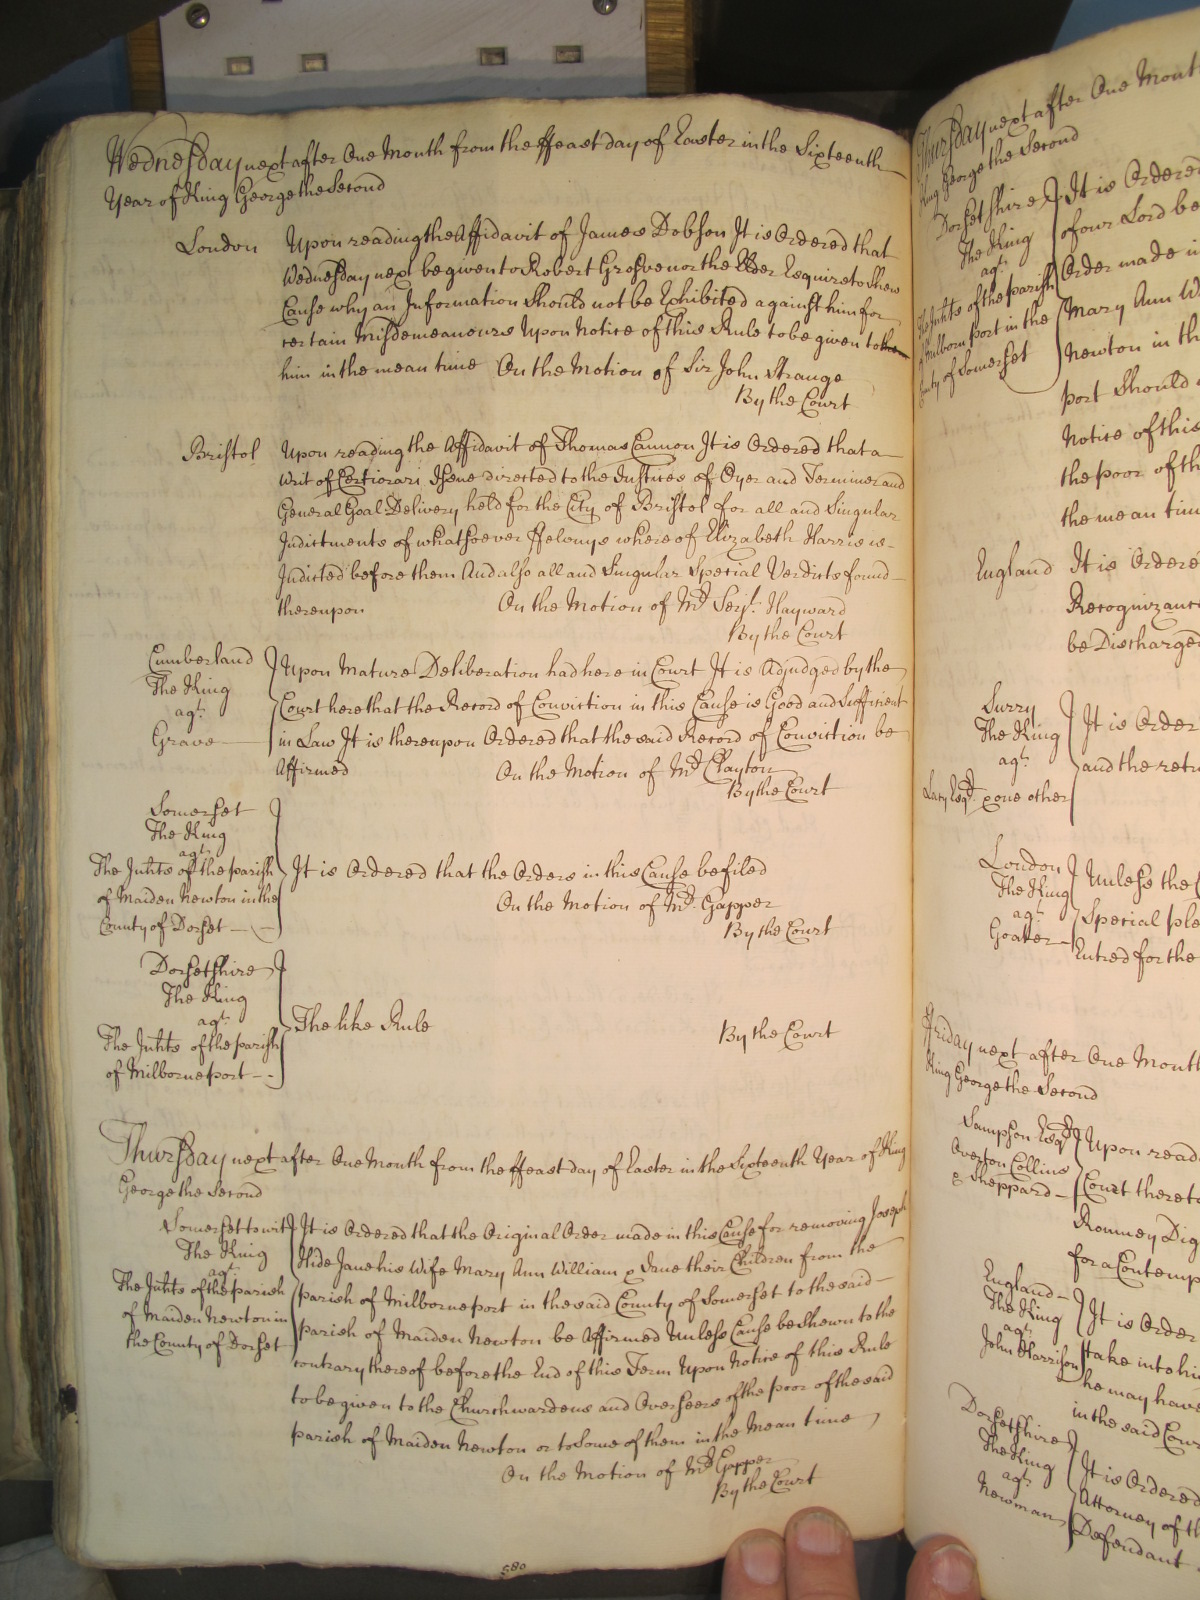 Wednesday next after One Month from the ffeast day of Easter in the Sixteenth
Year of King George the Second
London Upon reading the Affidavit of James Dobson It is Ordered that
Wednesday next be given to Robert Grosvenor the Elder Esquire to Shew
Cause why an Information Should not be Exhibited against him for
certain Misdemeanours Upon Notice of this Rule to be given to
him in the mean time On the Motion of Sir John Strange
By the Court
Bristol Upon reading the Affidavit of Thomas Cannon It is Ordered that a
Writ of Certiorari Issue directed to the Justices of Oyer and Terminer and
General Goal Delivery held for the City of Bristol for all and Singular
Indictments of whatsoever ffelonys whereof Elizabeth Harris is
Indicted before them And also all and Singular Special Verdicts found
thereupon On the Motion of Mr. Serjt. Hayward
By the Court
Cumberland
The King
agt.
Grave
Upon Mature Deliberation had here in Court It is Adjudged by the
Court here that the Record of Conviction in this Cause is Good and Sufficient
in Law It is thereupon Ordered that the said Record of Conviction be
Affirmed On the Motion of Mr. Clayton
By the Court
Somerset
The King
agt.
The Inhts of the parish
of Maiden Newton in the
County of Dorset
It is Ordered that the Orders in this Cause be filed
On the Motion of Mr. Gapper
By the Court
Dorsetshire
The King
agt.
The Inhts of the parish
of Milborneport
The like Rule By the Court
Thursday next after One Month from the ffeast day of Easter in the Sixteenth Year of King
George the Second
Somerset to wit
The King
agt.
The Inhts of the parish
of Maiden Newton in
the County of Dorset
It is Ordered that the Original Order made in this Cause for removing Joseph
Hide Jane his Wife Mary Ann William & Jane their Children from the
parish of Milborneport in the said County of Somerset to the said
parish of Maiden Newton be Affirmed Unless Cause be Shewn to the
contrary thereof before the End of this Term Upon Notice of this Rule
to be given to the Churchwardens and Overseers of the poor of the said
parish of Maiden Newton or to Some of them in the Mean time
On the Motion of Mr. Gapper
By the Court
580
Thursday next after One Month
King George the Second
Dorsetshire
The King
agt.
The Inhts of the parish
of Milborn port in the
County of Somerset
It is Ordered
of our Lord
Order made
Mary Ann
Newton in
port Should
Notice of this
the poor of the
the mean time
England It is Ordered
Recognizance
be Discharged
Surry
The King
agt.
Lacy Esqr. & one other
It is Order
and the
London
The King
agt.
Goater
Unless the
Special
Entred for the
Friday next after One Month
King George the Second
Sampson Esqr.
Overton Collins
& Sheppard
Upon
Court thereto
Romney
for a Contempt
England
The King
agt.
John Harrison
It is Order
take into his
he may have
in the said Court
Dorsetshire
The King
agt.
Newman
It is Ordered
Attorney of the
Defendant